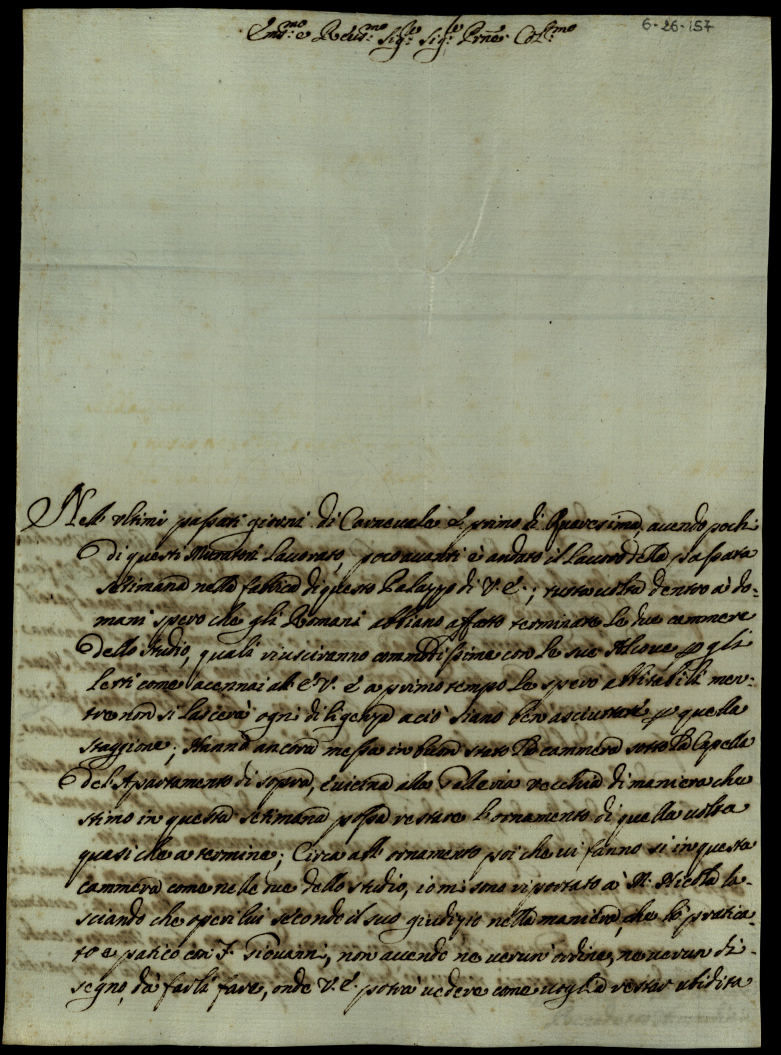 6-26-157
Em.mo e Reud.mo Sig.re Sig.re Prñe Col.mo
Nell vltimi passati giorni di Carneuale è primo di Quaresima, auendo pochi
di questi Muratori lauorato, poco auanti è andato il lauoro della passata
setimana nella fabbrica di questo Palazzo di V. E.; tutta uolta dentro à do=
mani spero che gli Romani abbiano affatto terminate le due cammere
dello studio, quali riusciranno commodissime con le sue Alcoue p gli
letti come accennai all' E. V. è a primo tempo le spero abbitabili men=
tre non si lascerà ogni diligenza acciò siano ben asciuttate p quella
staggione; Hanno ancora messa in buon stato la cammera sotto la Capella
del Apartamento di sopra, è uicina alla Galleria vecchia di maniera che
stimo in questa setimana possa restare l'ornamento di quella uolta
quasi che a termine; Circa all' ornamento poi che ui fanno si in questa
cammera come nelle due dello studio, io mi sono riportato à M. Nicola la=
sciando che operi lui secondo il suo giudizio nella maniera, che hà pratica=
to e patico con F. Giouanni, non auendo ne uerun' ordine, ne uerun di=
segno, dà farli fare, onde V. E. potrà uedere come uoglia restar ubidita